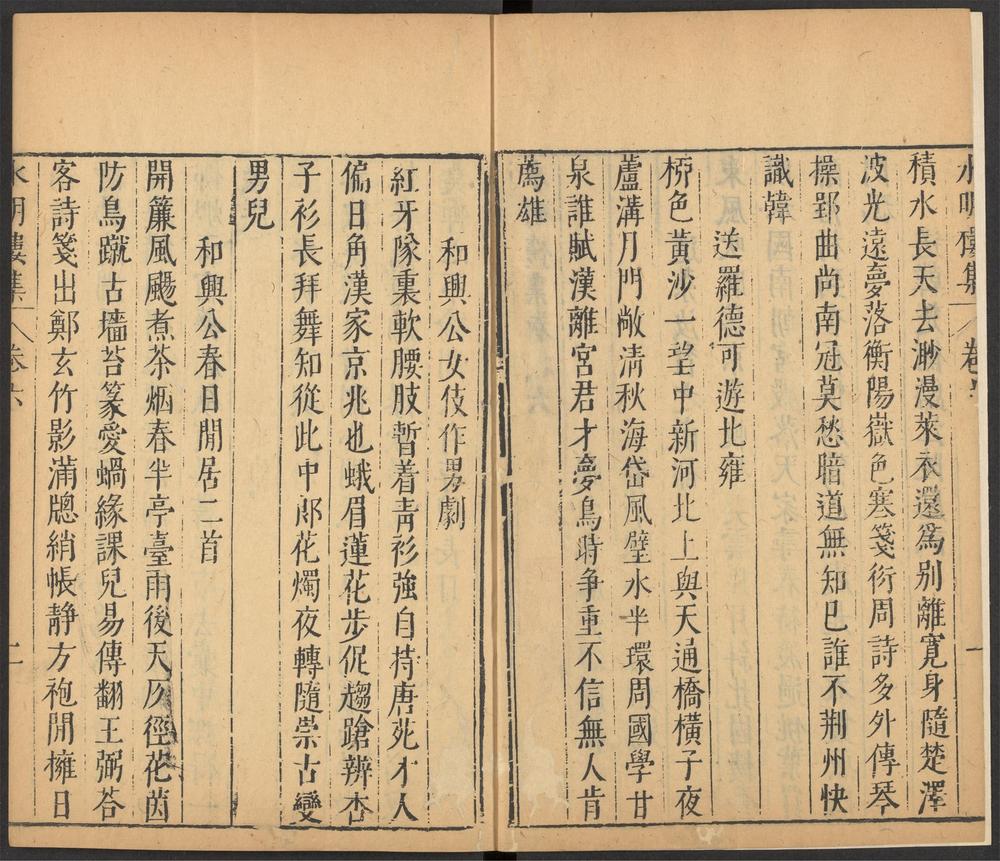 水明樓集 卷六 一
積水長天去渺漫萊衣還爲別離寬身隨楚澤
波光遠夢落衡陽嶽色寒箋衍周詩多外傳琴
操郢曲尚南冠莫愁暗道無知已誰不荆州快
識韓
送羅德可遊北雍
栁色黃沙一望中新河北上與天通橋橫子夜
蘆溝月門敞清秋海岱風璧水半環周國學甘
泉誰賦漢離宮君才夢鳥時争重不信無人肯
薦雄
和興公女伎作男劇
紅牙隊裏軟腰肢暫着青衫強自持唐苑才人
偏日角漢家京兆也蛾眉蓮花步促趨蹌辨杏
子衫長拜舞知從此中郎花燭夜轉隨崇古變
男兒
和興公春日閒居二首
開簾風颺煮茶烟春半亭臺雨後天仄徑花茵
防鳥蹴古墻苔篆愛蝸緣課兒易傳翻王弼荅
客詩箋出鄭玄竹影滿牕綃帳静方袍閒擁日
水明樓集 卷六 二